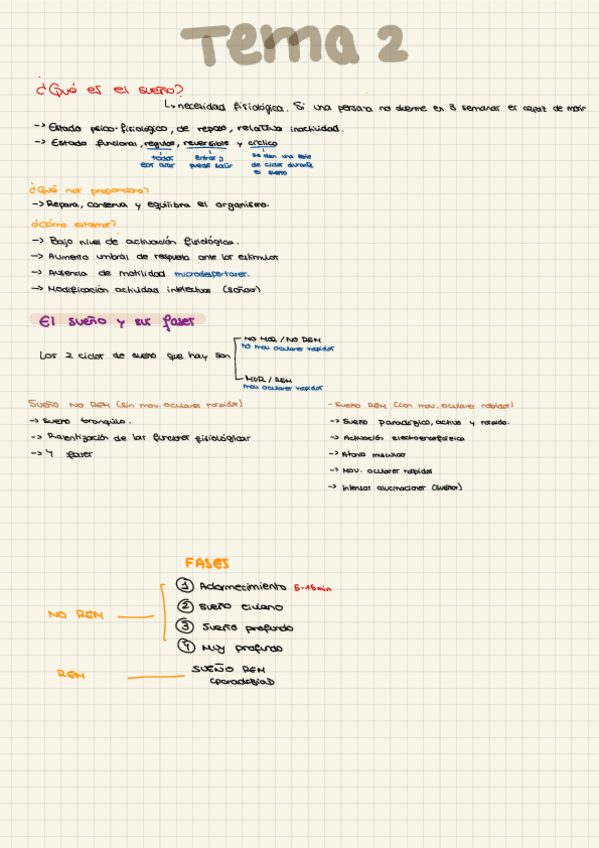 Tema 2
¿Qué es el sueño?
↳ necesidad fisiológica. Si una persona no duerme en 3 semanas es capaz de morir
-> Estado psico-fisiológico, de reposo, relativa inactividad.
-> Estado funcional, regular, reversible y cíclico
todos los días
entras y puede salir
se dan una serie de ciclos durante el sueño
¿Qué nos proporciona?
-> Repara, conserva y equilibra el organismo.
¿Cómo estamos?
-> Bajo nivel de activación fisiológica.
-> Aumento umbral de respuesta ante los estímulos
-> Ausencia de motilidad microdespertares.
-> Modificación actividad intelectual (soñar)
El sueño y sus fases
Los 2 ciclos de sueño que hay son
NO MOR / NO REM
no mov oculares rápidos
MOR / REM
mov oculares rápidos
Sueño NO REM (sin mov. oculares rápidos)
-> Sueño tranquilo.
-> Ralentización de las funciones fisiológicas
-> 4 fases
- Sueño REM (con mov. oculares rápidos)
-> Sueño paradójico, activo y rápido.
-> Activación electroencefálica
-> Atonía muscular
-> Mov. oculares rápidos
-> Intensas alucinaciones (sueños)
FASES
NO REM
1 Adormecimiento 5-15min
2 Sueño liviano
3 Sueño profundo
4 Muy profundo
REM
SUEÑO REM
(paradójico)